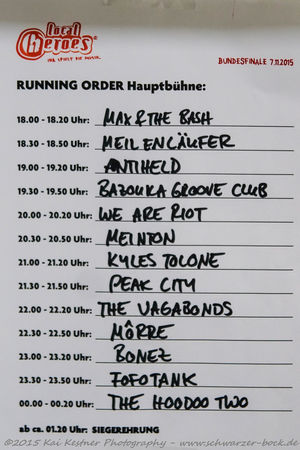 local
heroes®
BUNDESFINALE 7.11.2015
RUNNING ORDER Hauptbühne:
18.00 - 18.20 Uhr: MAX & THE BASH
18.30 - 18.50 Uhr: MEILENLÄUFER
19.00 - 19.20 Uhr: ANTIHELD
19.30 - 19.50 Uhr: BAZOUKA GROOVE CLUB
20.00 - 20.20 Uhr: WE ARE RIOT
20.30 - 20.50 Uhr: MEINTON
21.00 - 21.20 Uhr: KYLES TOLONE
21.30 - 21.50 Uhr: PEAK CITY
22.00 - 22.20 Uhr: THE VAGABONDS
22.30 - 22.50 Uhr: MÔRRE
23.00 - 23.20 Uhr: BONEZ
23.30 - 23.50 Uhr: FOFOTANK
00.00 - 00.20 Uhr: THE HOODOO TWO
ab ca. 01.20 Uhr: SIEGEREHRUNG
©2015 Kai Kestner Photography - www.schwarzer-bock.de